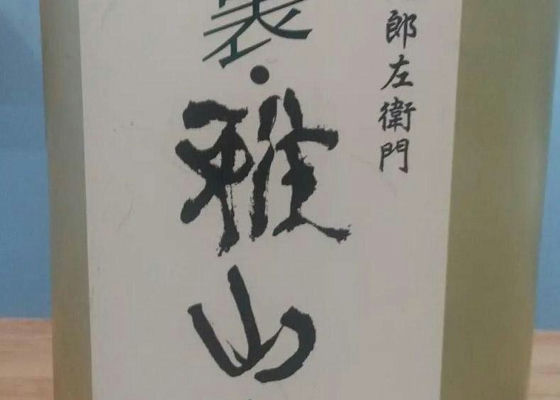 郎左衛門
裏・雅山